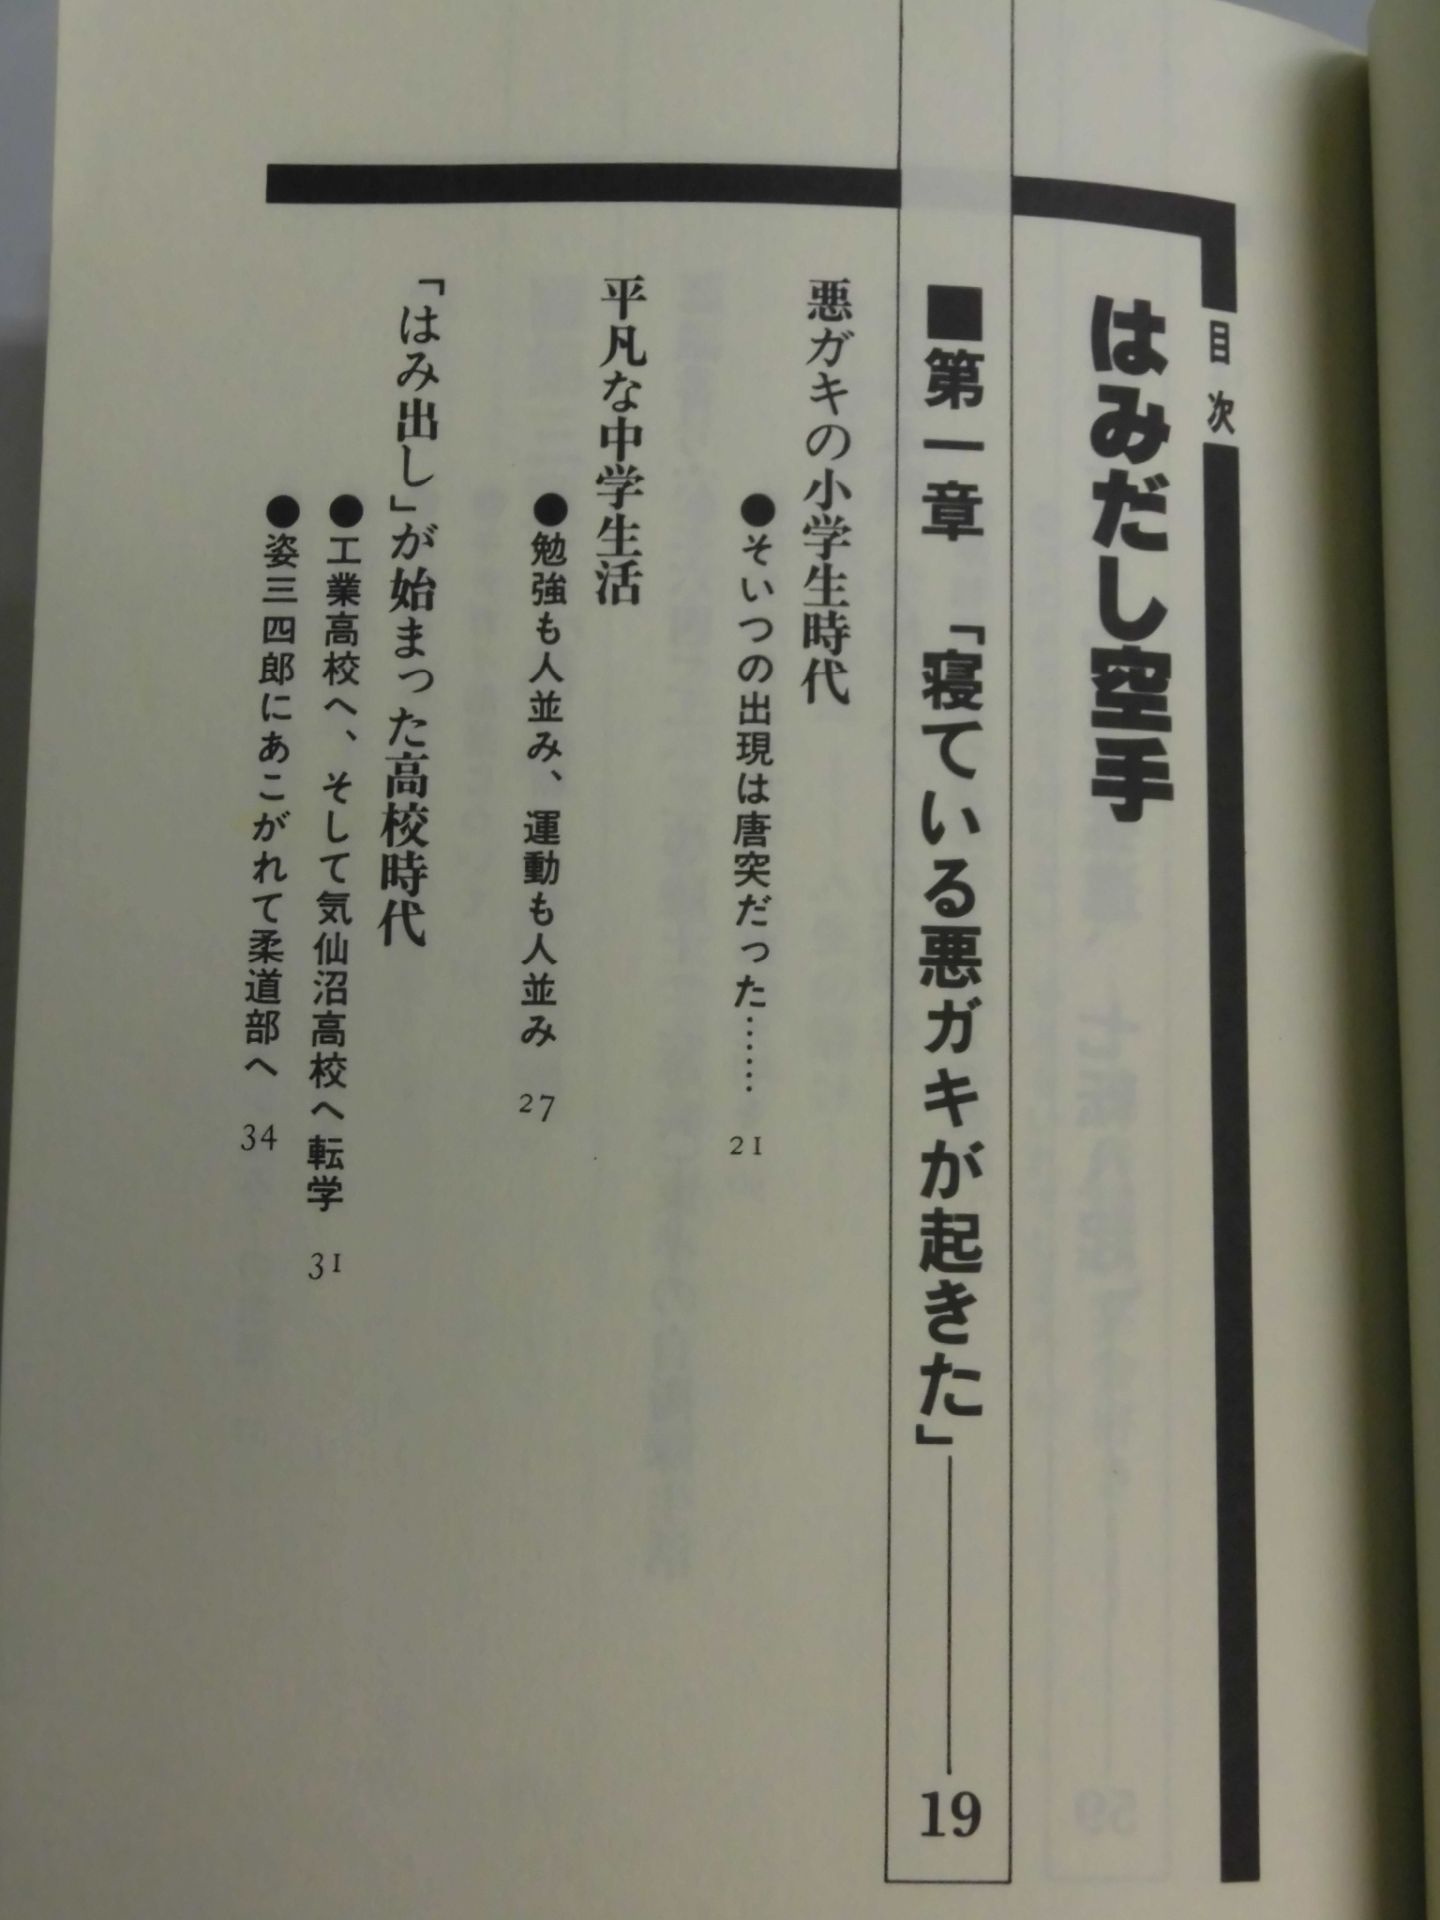 目次
はみだし空手
■第一章 「寝ている悪ガキが起きた」——19
悪ガキの小学生時代
●そいつの出現は唐突だった…… 21
平凡な中学生活
●勉強も人並み、運動も人並み 27
「はみ出し」が始まった高校時代
●工業高校へ、そして気仙沼高校へ転学 31
●姿三四郎にあこがれて柔道部へ 34